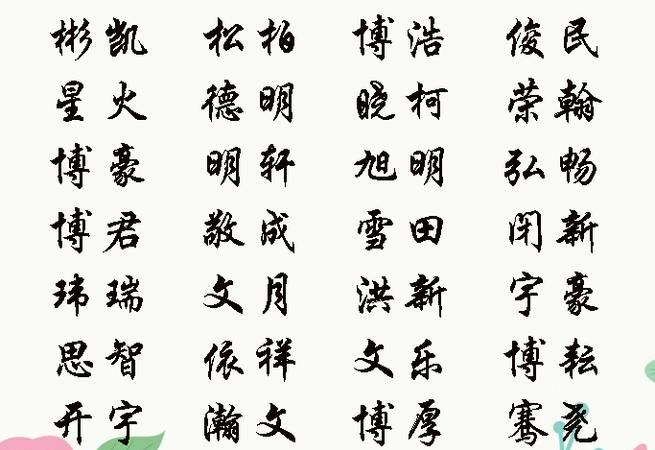 彬凯 松柏 博浩 俊民
星火 德明 晓柯 荣翰
博豪 明轩 旭明 弘畅
博君 敬成 雪田 闭新
玮瑞 文月 洪新 宇豪
思智 依祥 文乐 博耘
开宇 瀚文 博厚 骞尧